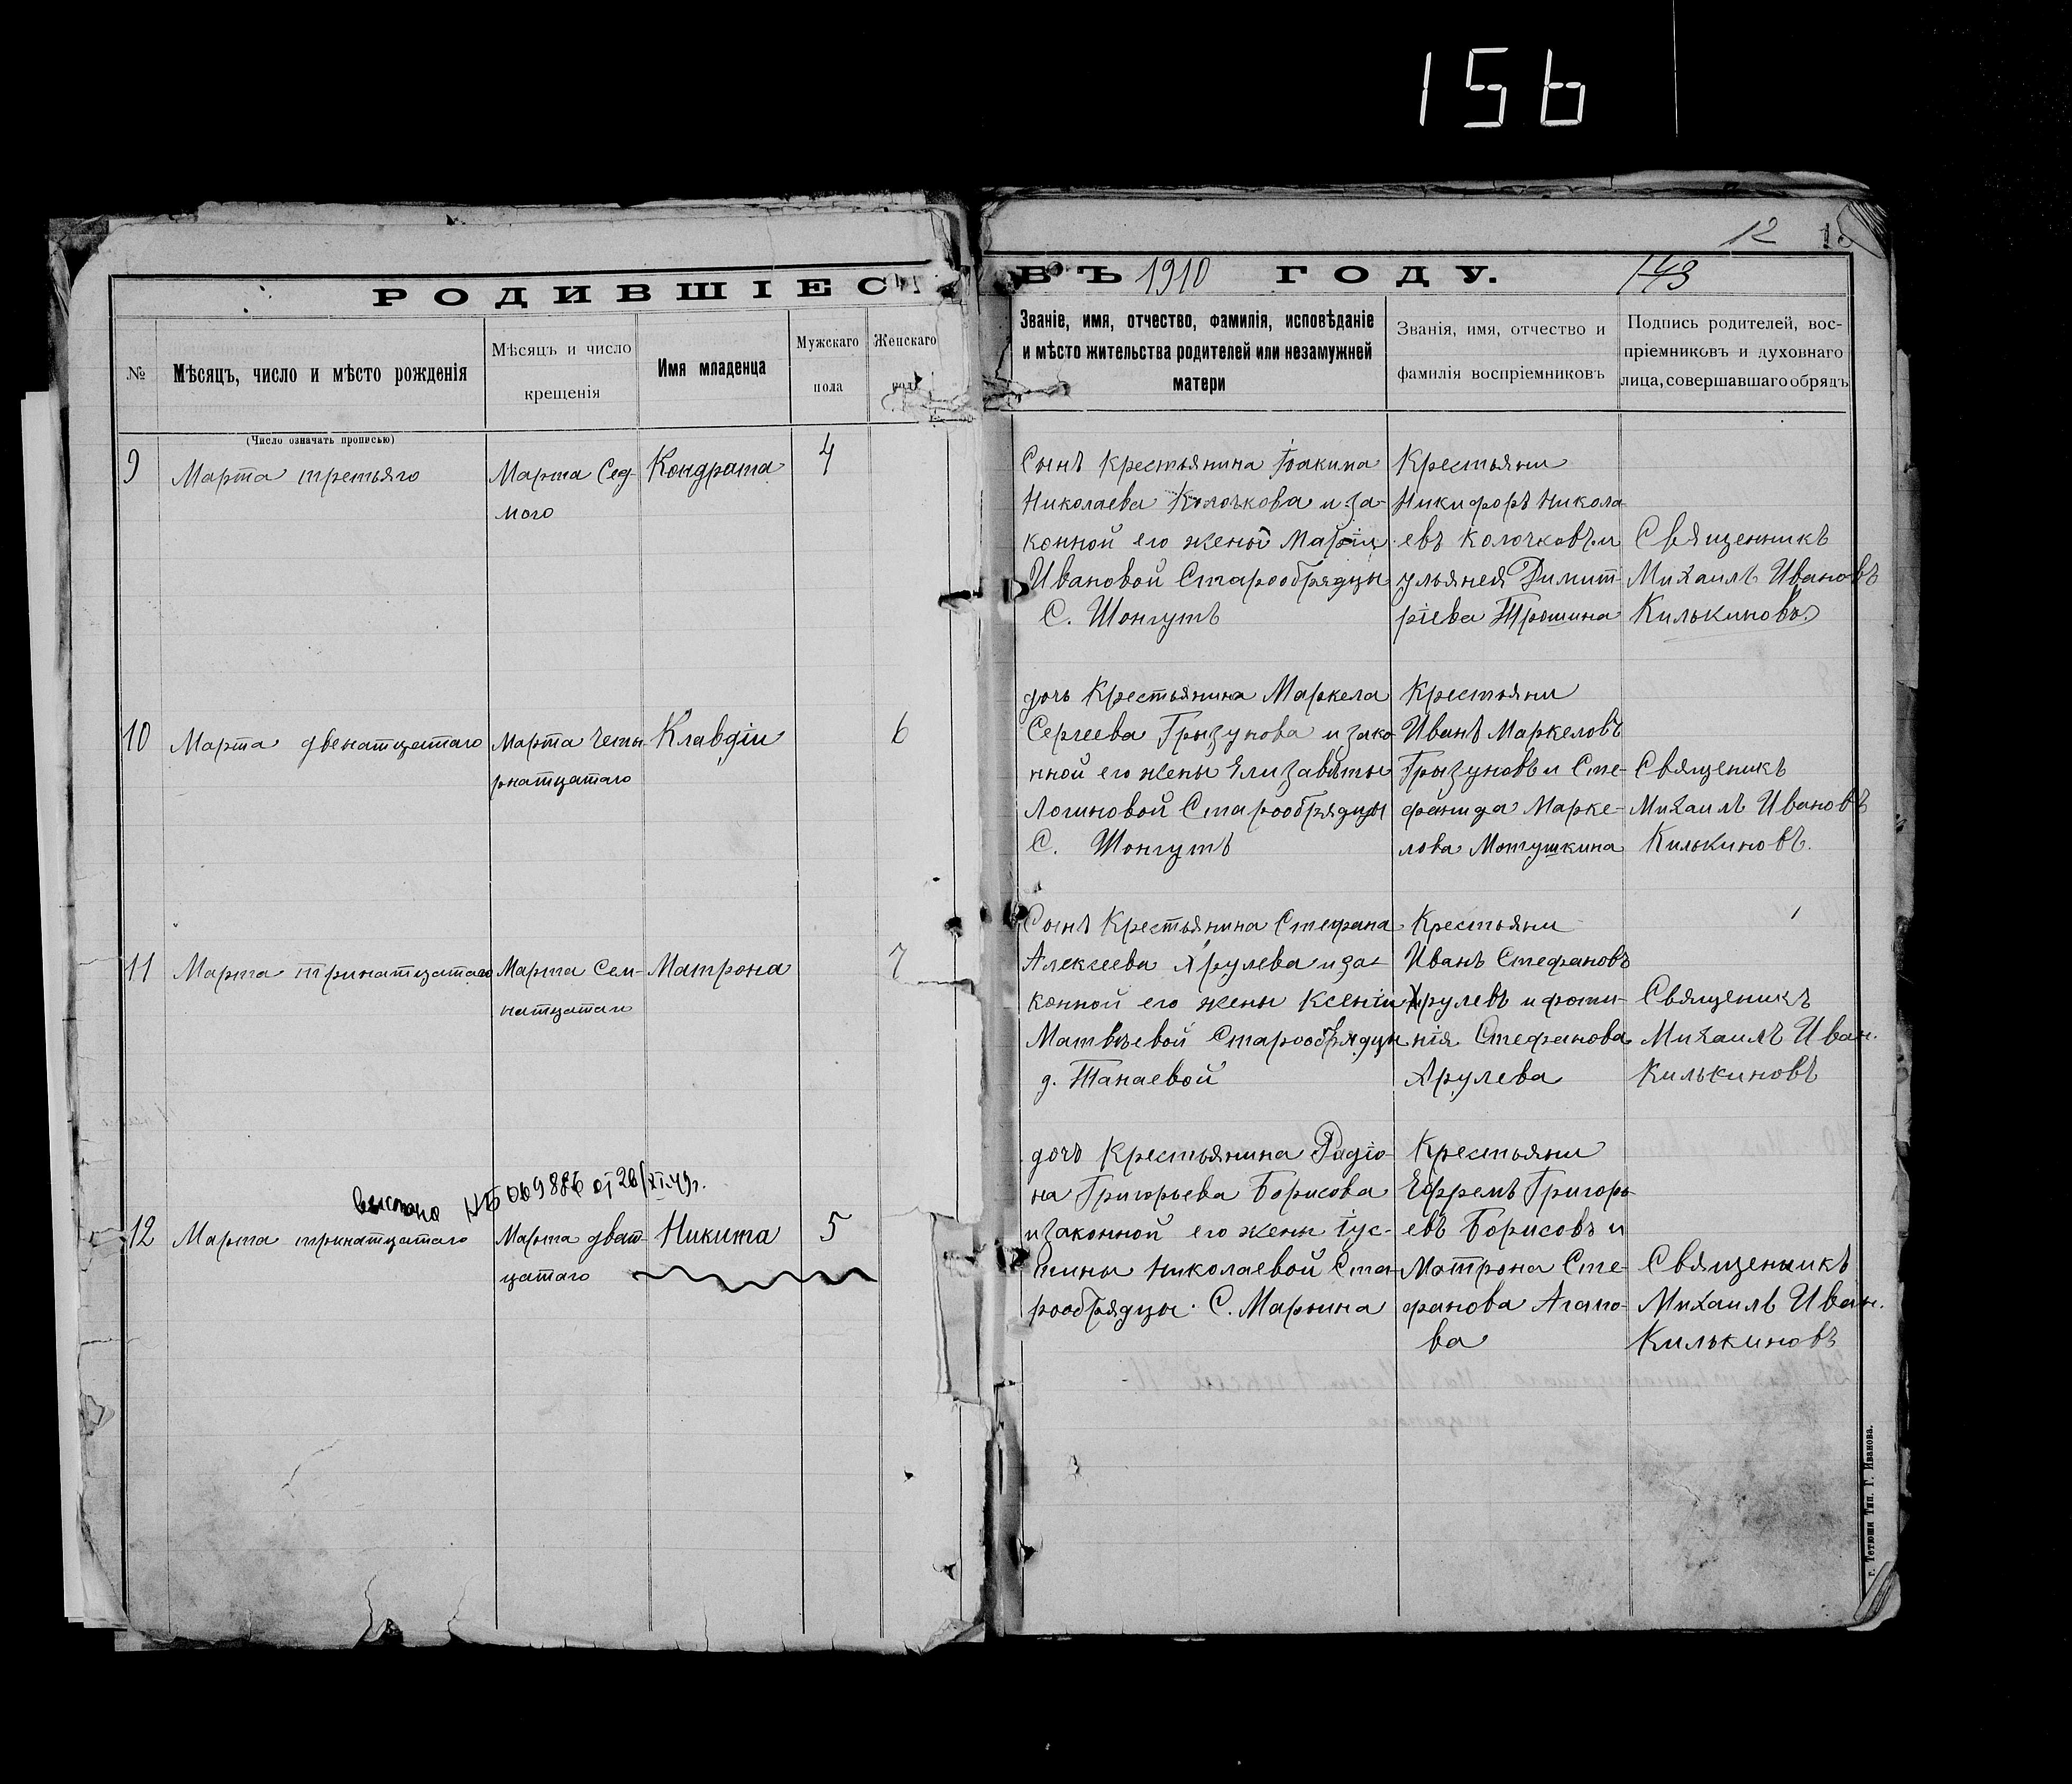 156
12
РОДИВШІЕС
ВЪ 1910 ГОДУ.
143
№
Мѣсяцъ, число и мѣсто рожденія
Мѣсяцъ и число
крещенія
Имя младенца
Мужскаго
пола
Женскаго
пола
Званіе, имя, отчество, фамилія, исповѣданіе
и мѣсто жительства родителей или незамужней
матери
Званія, имя, отчество и
фамилія воспріемниковъ
Подпись родителей, вос-
пріемниковъ и духовнаго
лица, совершавшаго обрядъ
(Число означать прописью)
9
Марта третьяго
Марта Сед-
мого
Кондрата
4
Сынъ крестьянина Іоакима
Николаева Колочкова и за-
конной его жены Маріи
Ивановой Старообрядцы
С. Шонгутъ
Крестьяни
Никифоръ Никола-
евъ Колочковъ и
ульянея Димит-
ріева Трошина
Священникъ
Михаилъ Ивановъ
Килькиновъ.
10
Марта двенатцатаго
Марта четы-
рнатцатаго
Клавдіи
6
дочь Крестьянина Маркела
Сергеева Грызунова и зако-
нной его жены Елизаветы
Логиновой Старообрядцы
С. Шонгутъ
Крестьяни
Иванъ Маркеловъ
Грызуновъ и Сте-
фанида Марке-
лова Мотушкина
Священикъ
Михаилъ Ивановъ
Килькиновъ.
11
Марта тринатцатаго
Марта Сем-
натцатаго
Матрона
7
Сынъ Крестьянина Стефана
Алексеева Хрулева и за-
конной его жены Ксеніи
Матвѣевой Старообрядцы
д. Танаевой
Крестьяни
Иванъ Стефановъ
Хрулевъ и фоти-
нія Стефанова
Хрулева
Священикъ
Михаилъ Иван.
Килькиновъ
НБ 069886 от 26/XI.49г.
12
Марта тринатцатаго
Марта дват-
цатаго
Никита
5
дочь Крестьянина Радіо-
на Григорьева Борисова
и законной его жены Іус-
тины Николаевой Ста-
рообрядцы. С. Марьина
Крестьяни
Ефремъ Григорь-
евъ Борисовъ и
Матрона Сте-
фанова Агапо-
ва
Священникъ
Михаилъ Иван.
Килькиновъ
г. Тетюши Тип. Г. Иванова.